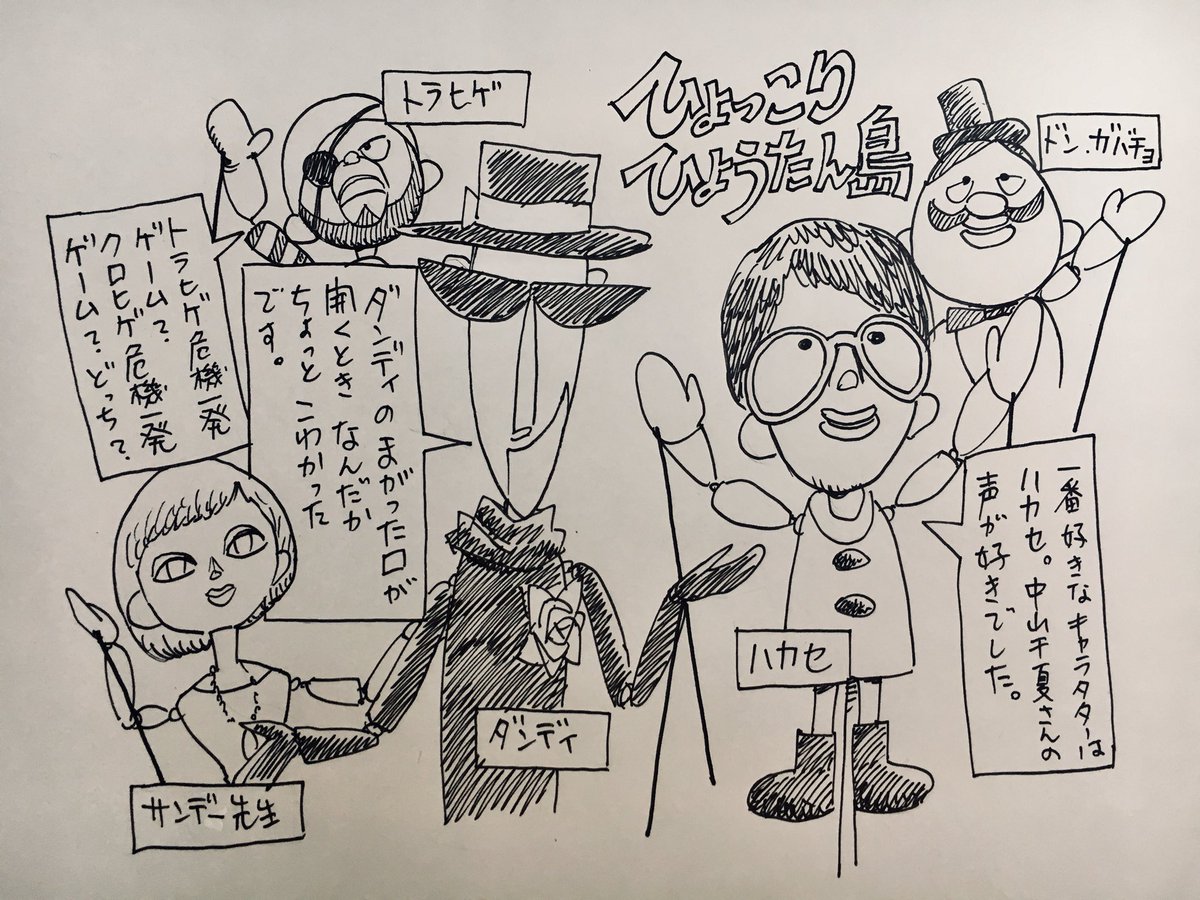 ひょっこり
ひょうたん島
トラヒゲ
ドン.ガバチョ
トラヒゲ危機一発
ゲーム?
クロヒゲ危機一発
ゲーム?どっち?
ダンディのまがった口が
開くときなんだか
ちょっとこわかった
です。
一番好きなキャラクターは
ハカセ。中山千夏さんの
声が好きでした。
ハカセ
ダンディ
サンデー先生